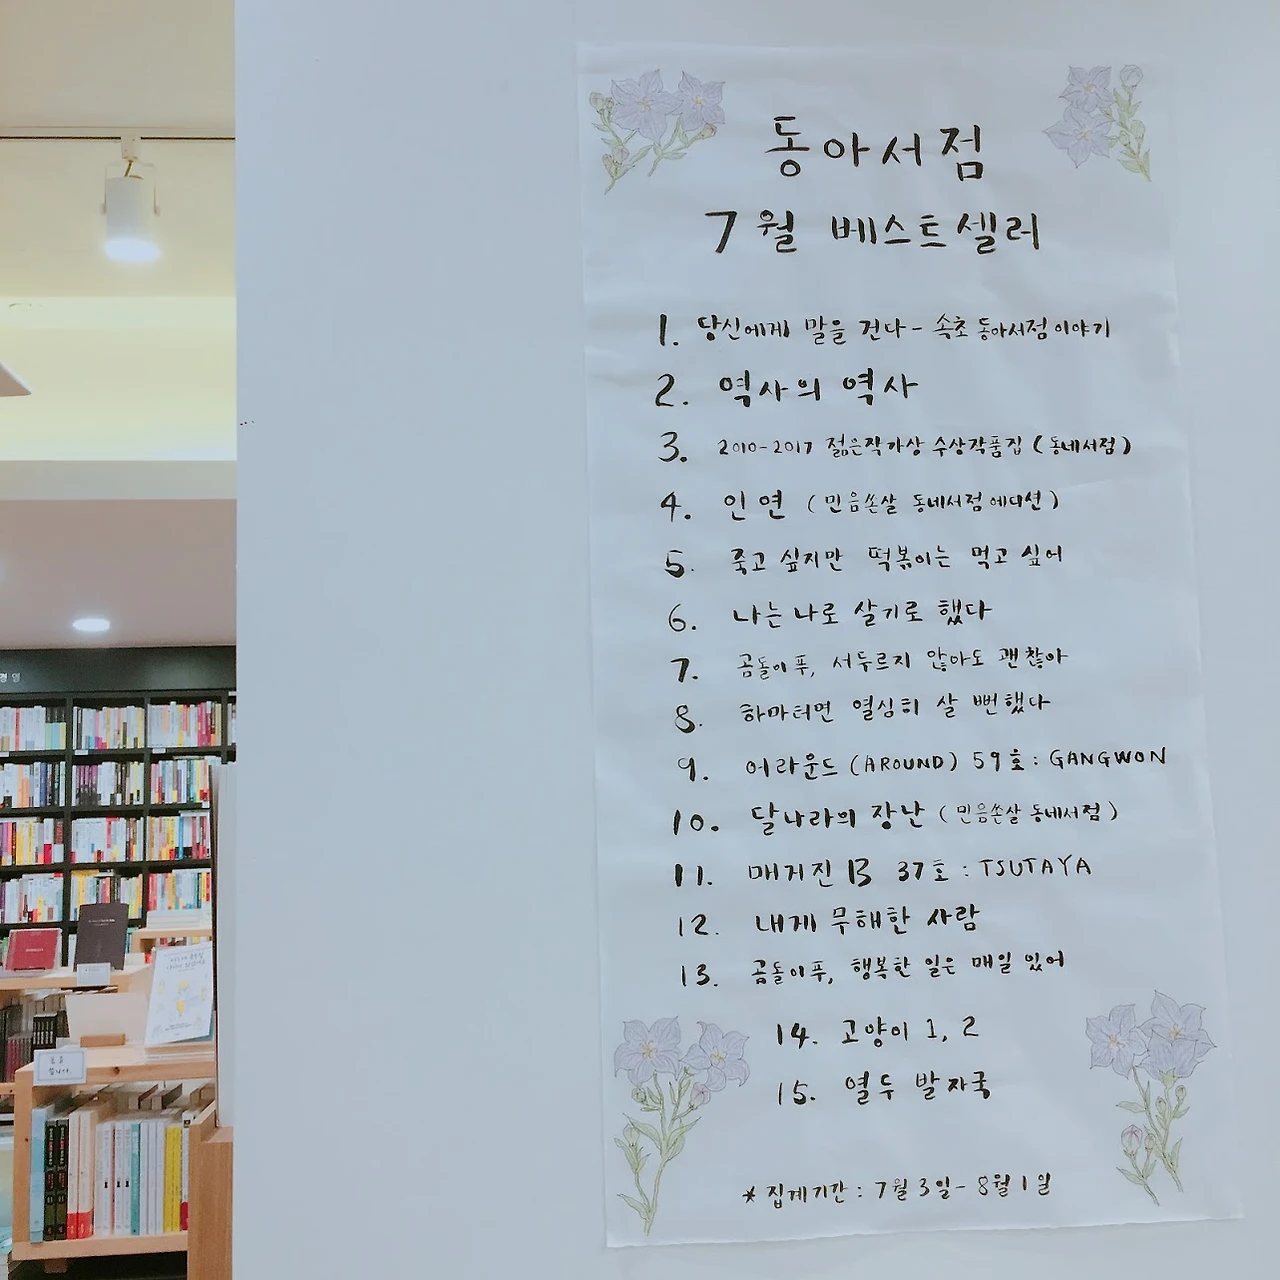 동아서점
7월 베스트셀러
1. 당신에게 말을 건다 - 속초 동아서점 이야기
2. 역사의 역사
3. 2010-2017 젊은작가상 수상작품집 (동네서점)
4. 인연 (민음쏜살 동네서점 에디션)
5. 죽고 싶지만 떡볶이는 먹고 싶어
6. 나는 나로 살기로 했다
7. 곰돌이 푸, 서두르지 않아도 괜찮아
8. 하마터면 열심히 살 뻔했다
9. 어라운드 (AROUND) 59호 : GANGWON
10. 달나라의 장난 (민음쏜살 동네서점)
11. 매거진 B 37호 : TSUTAYA
12. 내게 무해한 사람
13. 곰돌이 푸, 행복한 일은 매일 있어
14. 고양이 1, 2
15. 열두 발자국
* 집계기간 : 7월 3일 - 8월 1일
경영